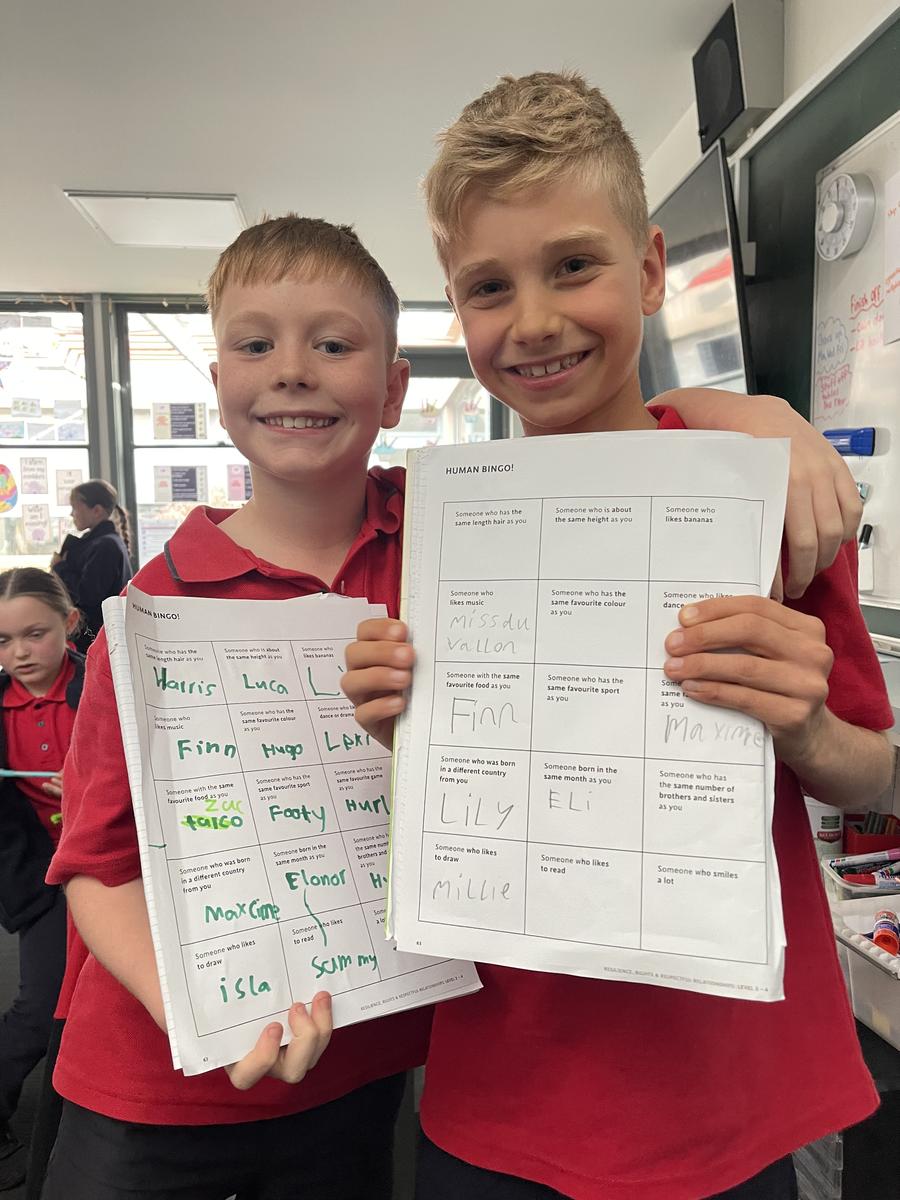 HUMAN BINGO!
Someone who has the
same length hair as you
Harris
Someone who is about
the same height as you
Luca
Someone who
likes bananas
Someone who
likes music
Finn
Someone who has the
same favourite colour
as you
Hugo
Someone with the same
favourite food as you
Zac
Someone who has the
same favourite sport
as you
Footy
Someone who was born
in a different country
from you
Someone born in the
same month as you
Elonor
Someone who likes
to draw
isla
Someone who likes
to read
Sammy
63
RESILIENCE, RIGHTS & RESPECTFUL RELATIONSHIPS: LEVEL 3 – 4
HUMAN BINGO!
Someone who has the
same length hair as you
Someone who is about
the same height as you
Someone who
likes bananas
Someone who
likes music
missdu
vallon
Someone who has the
same favourite colour
as you
Someone who likes
dance
Someone with the same
favourite food as you
Finn
Someone who has the
same favourite sport
as you
Maxime
Someone who was born
in a different country
from you
LiLY
Someone born in the
same month as you
ELi
Someone who has
the same number of
brothers and sisters
as you
Someone who likes
to draw
millie
Someone who likes
to read
Someone who smiles
a lot
63
RESILIENCE, RIGHTS & RESPECTFUL RELATIONSHIPS: LEVEL 3 – 4
Finish off